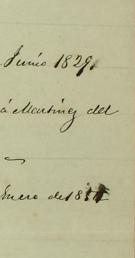 Junio 1829.
á Martinez del
Enero de 18